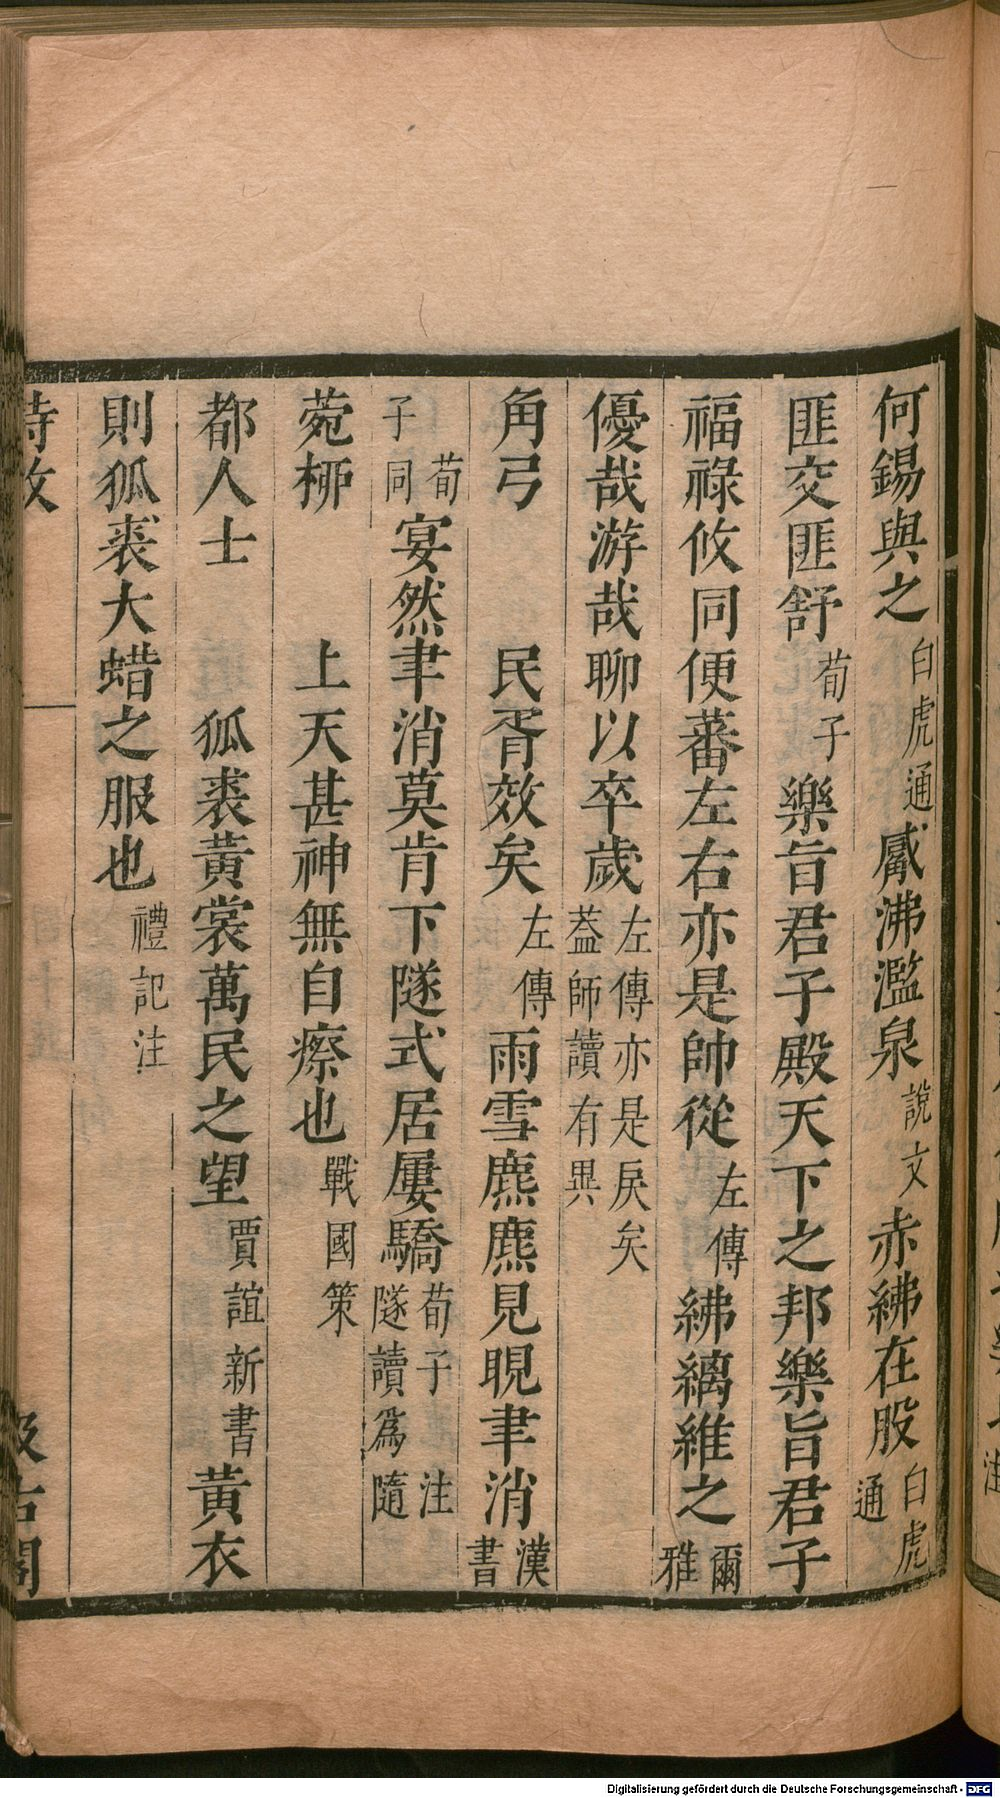 何錫與之白虎通觱沸濫泉說文赤紼在股白虎通
匪交匪舒荀子樂旨君子殿天下之邦樂旨君子
福祿攸同便蕃左右亦是帥從左傳紼縭維之爾雅
優哉游哉聊以卒歲左傳亦是戾矣蓋師讀有異
角弓　民胥效矣左傳雨雪麃麃見晛聿消漢書
荀子同宴然聿消莫肯下隧式居屢驕荀子注隧讀為隨
菀栁　上天甚神無自瘵也戰國策
都人士　狐裘黃裳萬民之望賈誼新書黃衣
則狐裘大蜡之服也禮記注
詩攷
汲古閣
Digitalisierung gefördert durch die Deutsche Forschungsgemeinschaft - DFG